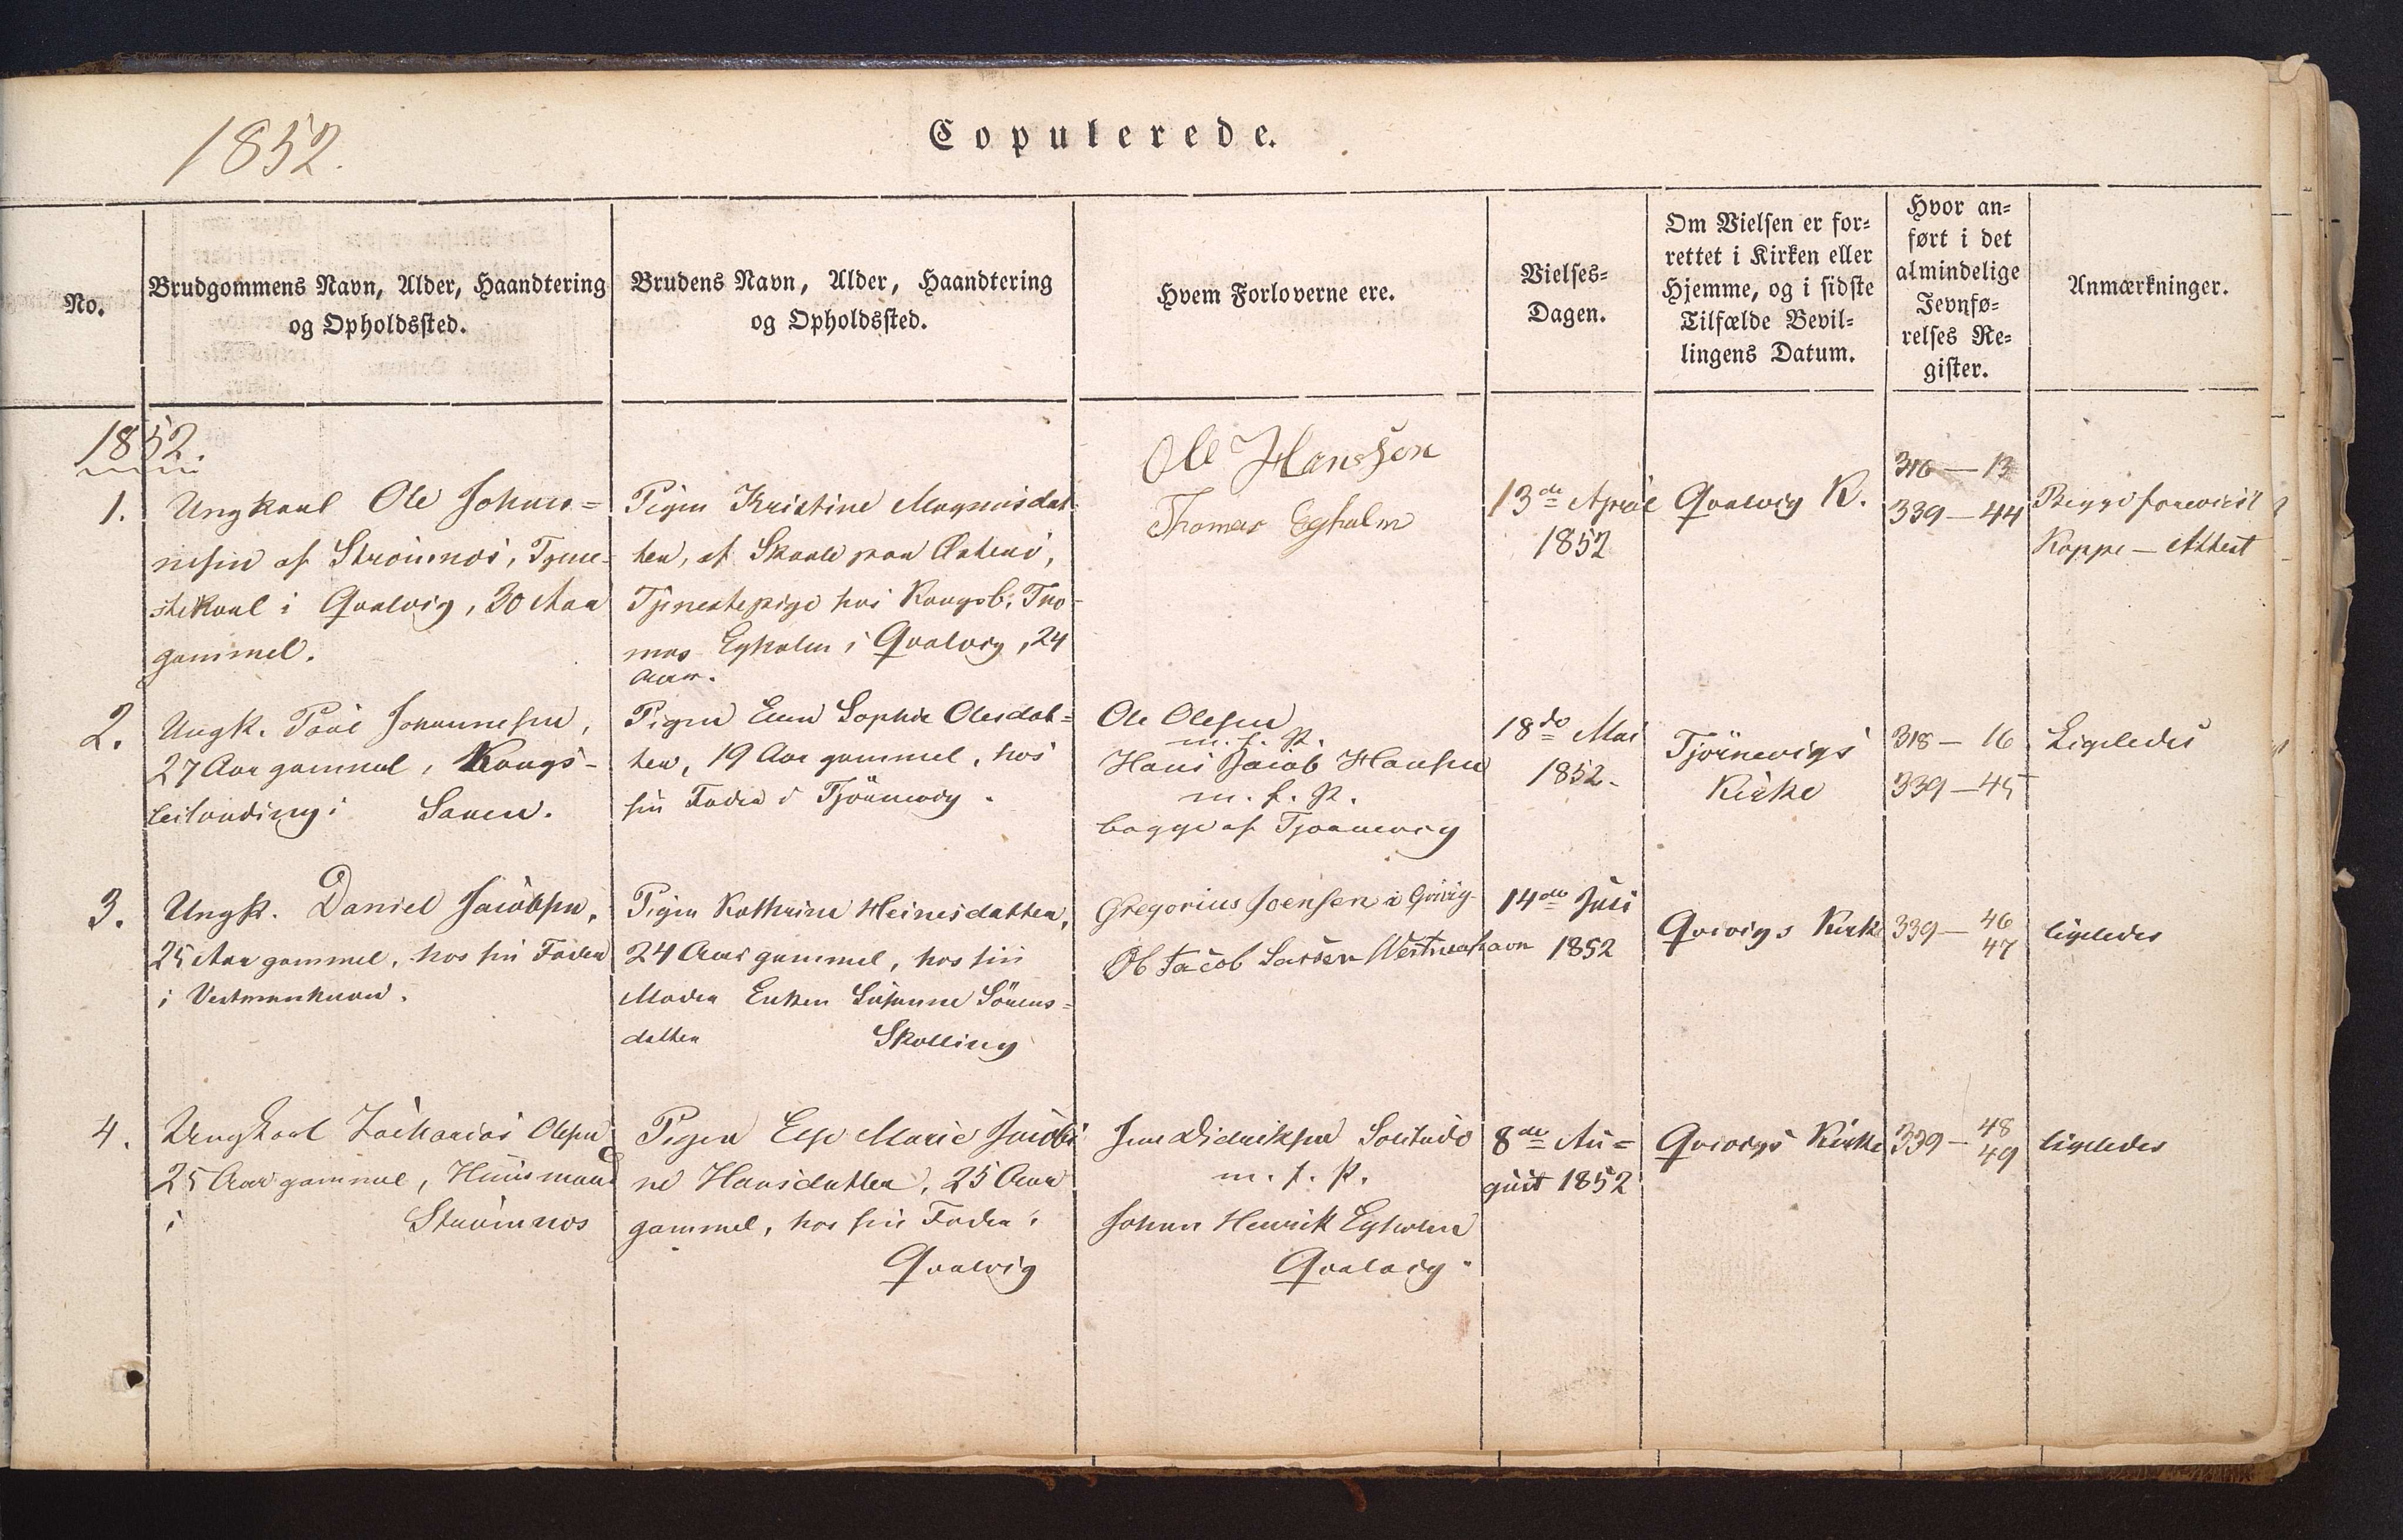 1852.
Copulerede.
No.
Brudgommens Navn, Alder, Haandtering
og Opholdssted.
Brudens Navn, Alder, Haandtering
og Opholdssted.
Hvem Forloverne ere.
Vielses-
Dagen.
Om Vielsen er for-
rettet i Kirken eller
Hjemme, og i sidste
Tilfælde Bevil-
lingens Datum.
Hvor an-
ført i det
almindelige
Jevnfø-
relses Re-
gister.
Anmærkninger.
1852.
1.
Ungkarl Ole Johan-
nesen af Strömnæs, Tjene-
stekarl i Qvalvig, 30 Aar
gammel.
Pigen Kristine Magnusdat-
ter, af Skaale paa Österö,
Tjenestepige hos Kongsb. Tho-
mas Egholm i Qvalvig, 24
Aar.
Ole Hansson
Thomas Egholm
13de April
1852
Qvalvig K.
316 — 13
339 — 44
Begge forevist
Koppe-Attest
2.
Ungk. Poul Johannesen,
27 Aar gammel, Kongs-
bilanding i Saxen.
Pigen Sophie Olesdat-
ter, 19 Aar gammel, hos
sin Fader i Tjörnevig.
Ole Olesen
m. f. P.
Hans Jacob Hansen
m. f. P.
begge af Tjörnevig
18de Mai
1852.
Tjörnevigs
Kirke
318 — 16
339 — 45
Ligeledes
3.
Ungk. Daniel Jacobsen,
25 Aar gammel, hos sin Fader
i Vestmanhavn.
Pigen Kathrine Heinesdatter,
24 Aar gammel, hos sin
Moder Enken Susanne Sörens-
datter Skælling
Gregorius Joensen i Qvivig
Ob Jacob Larsen Westmanhavn
14de Juli
1852
Qvivigs Kirke
339 — 46
47
ligeledes
4.
Ungkarl Zacharias Olesen
25 Aar gammel, Huusmand
i Strömnæs
Pigen Else Marie Jacobi-
ne Hansdatter, 25 Aar
gammel, hos sin Fader i
Qvalvig
Didriksen
m. f. P.
Johan Henrik Egholm
Qvalvig.
8de Au-
gust 1852
Qvivigs Kirke
339 — 48
49
ligeledes